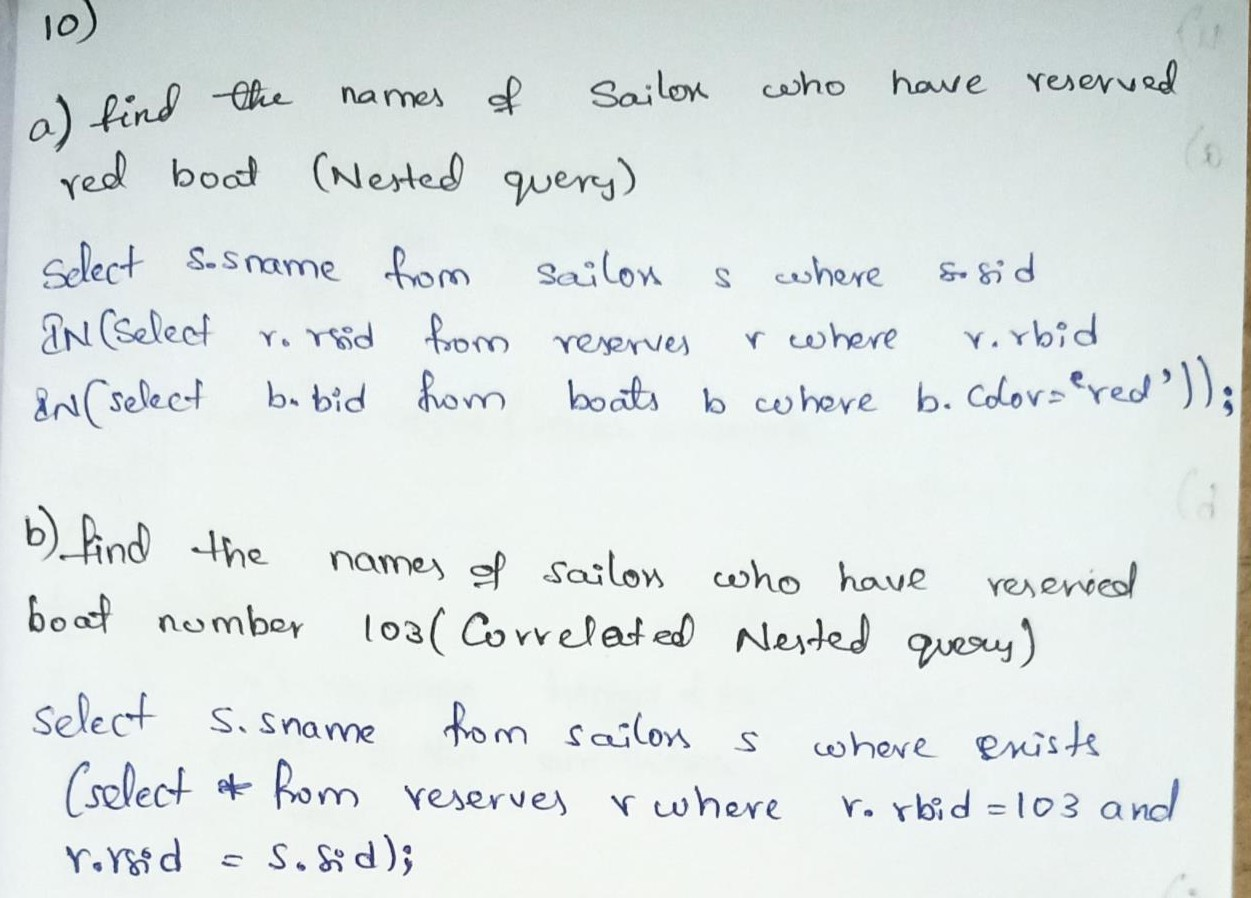 10)
a) find the names of Sailors who have reserved
red boat (Nested query)
Select s.sname from sailors s where s.sid
IN(Select r.rsid from reserves r where r.rbid
IN(select b.bid from boats b where b.color='red'));
b) find the names of sailors who have reserved
boat number 103(Correlated Nested query)
select s.sname from sailors s where exists
(select * from reserves r where r.rbid=103 and
r.rsid = s.sid);